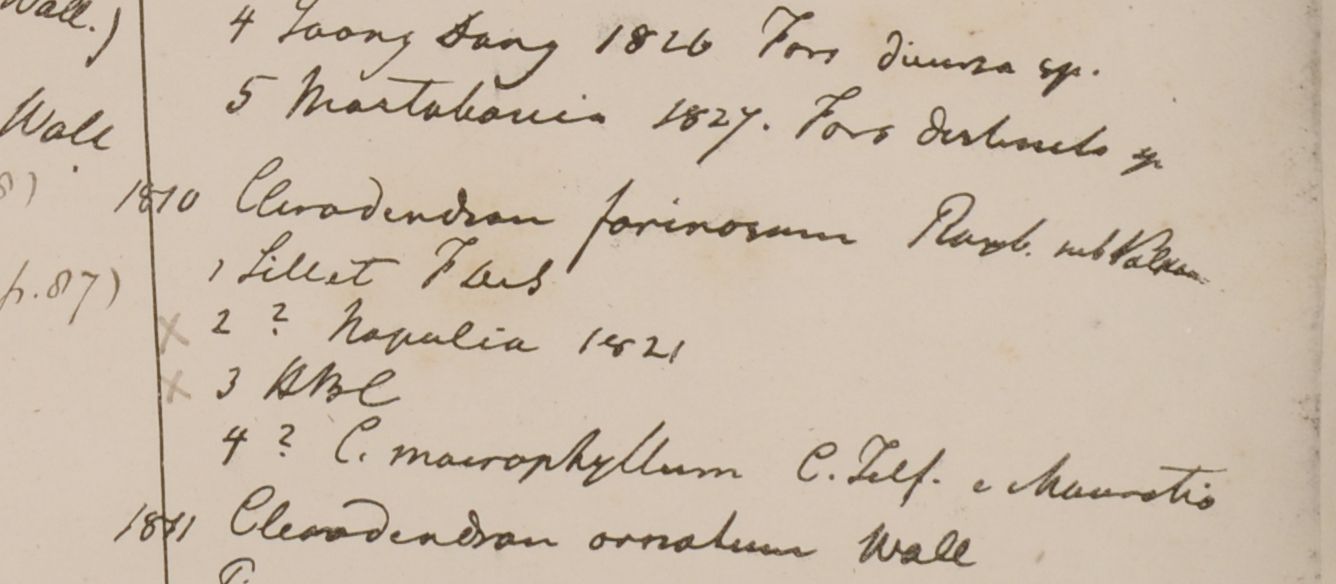 Wall.)
4 Taong Dong 1826 Fors diversa sp.
5 Martabania 1827. Fors distincta sp
Wall
1810 Clerodendron farinosum Roxb. sub Volkam
8)
1 Sillet FDeS
p.87)
2 ? Napalia 1821
3 HBC
4 ? C. macrophyllum C. Telf. e Mauritio
1811 Clerodendron ornatum Wall